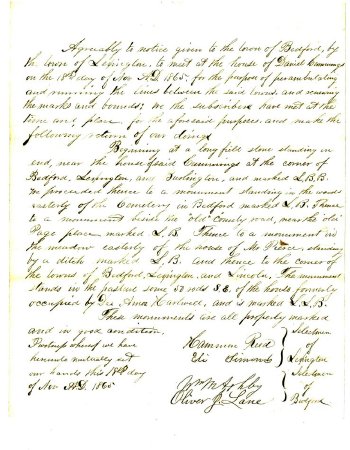 Agreeably to notice given to the town of Bedford, by
the town of Lexington, to meet at the house of Daniel Cummings
on the 18th day of Nov A.D. 1865, for the purpose of perambulating
and running the lines between the said towns, and renewing
the marks and bounds; we the subscribers have met at the
time and place, for the aforesaid purposes, and make the
following return of our doings
Beginning at a long field stone standing on
end, near the house of said Cummings at the corner of
Bedford, Lexington, and Burlington, and marked L.B.B.
we proceeded thence to a monument standing in the woods
easterly of the Cemetery in Bedford marked L.B. Thence
to a monument beside the "old" county road, near the old
Page place marked L.B. Thence to a monument in
the meadow easterly of the house of Mr Pierce, standing
by a ditch marked L.B. and thence to the corner of
the towns of Bedford, Lexington and Lincoln. The monument
stands in the pasture some 50 rods S.E. of the house formerly
occupied by Amos Hartwell, and is marked L.L.B.
These monuments are all properly marked
and in good condition.
In witness whereof we have
hereunto mutually set
our hands this 18th day
of Nov A.D. 1865
Hammon Reed
Eli Simonds
Selectmen
of
Lexington
Wm M
Oliver J. Lane
Selectmen
of
Bedford